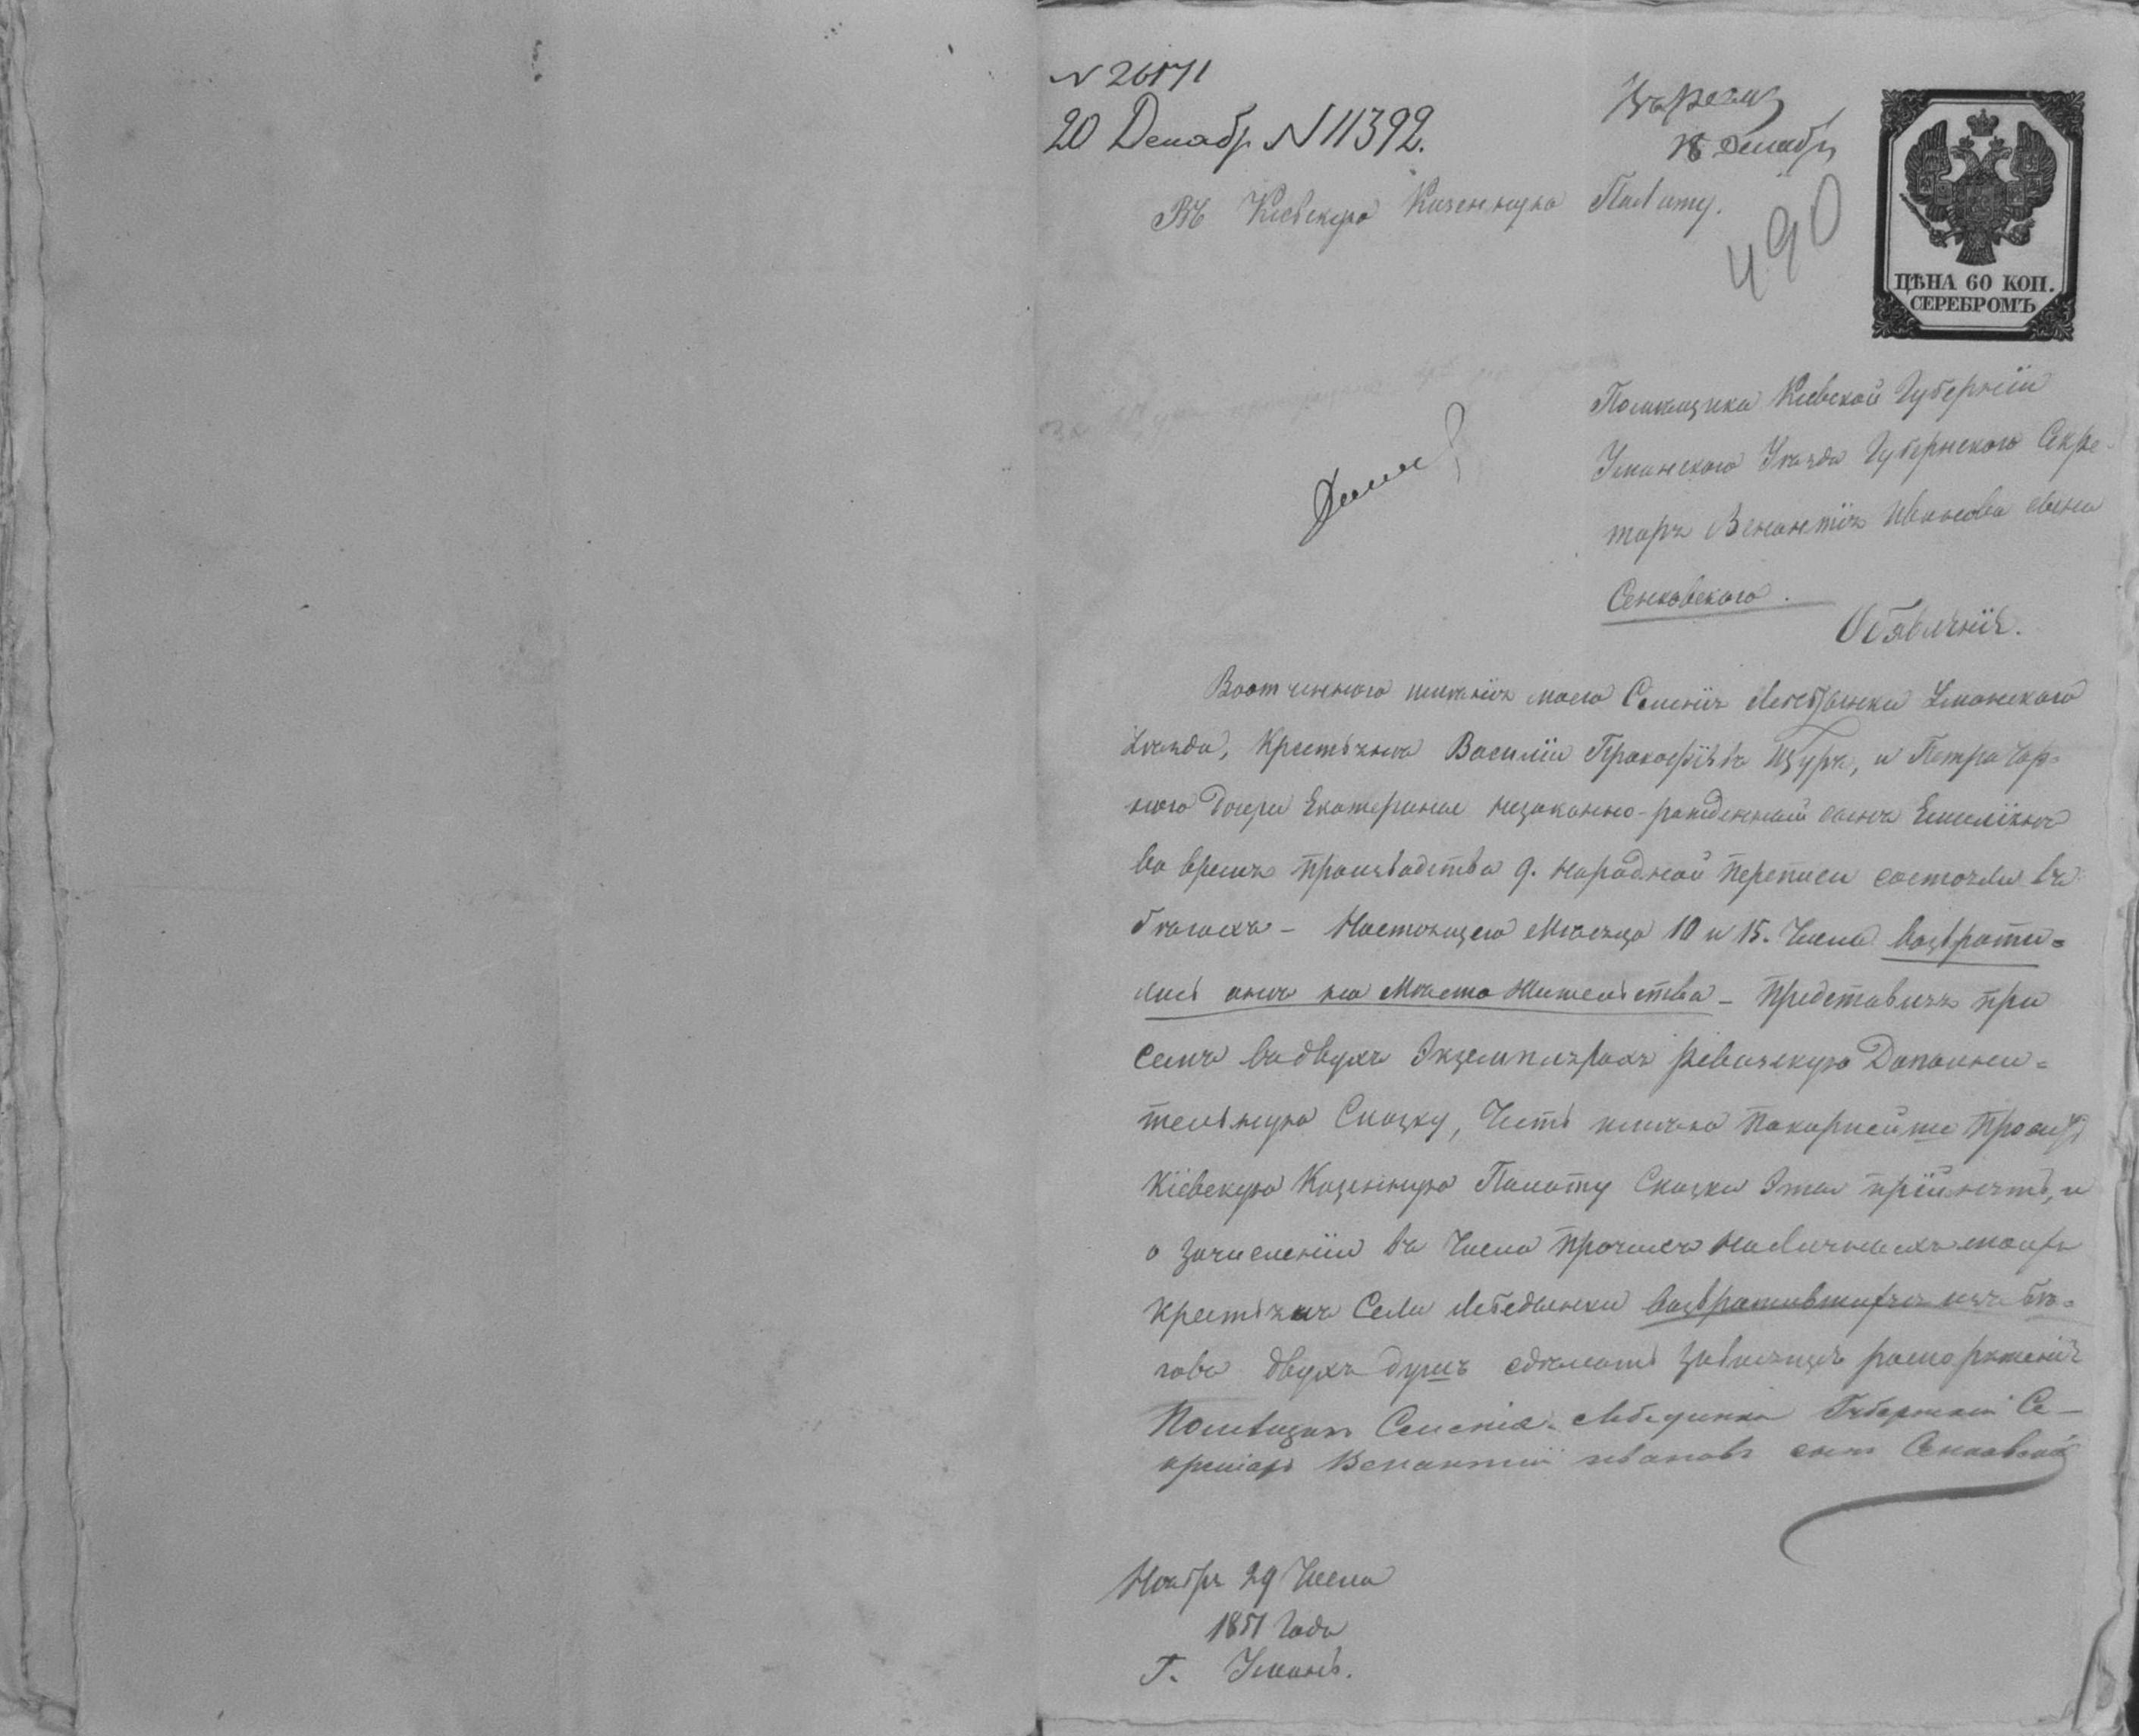 N 26171
20 Декабр N 11392.
18 Декабр
Въ Кіевскую Казенную Палату.
490
ЦѢНА 60 КОП.
СЕРЕБРОМЪ
Помѣщика Кіевской Губерніи
Уманскаго Уѣзда Губернскаго Секре-
таря Венантія Иванова сына
Сенковскаго.
Обявленіе.
Воотченнаго имѣнія моего Селенія Лебедынки Уманскаго
Уѣзда, Крестьяне Василій Прокофіевъ Щуръ, и Петра Чор-
ного дочери Екатерины незаконно-рожденный сынъ Емиліянъ
во время производства 9. народной переписи состояли въ
бѣгахъ - Настоящего Мѣсяца 10 и 15. Числа возврати=
лись они на Мѣсто Жительства - Представляя при
семъ въ двухъ Экземплярахъ ревизскую Дополни=
тельную Сказку, Честь имѣю покорнейше просить
Кіевскую Казенную Палату Сказки Эти прійнять, и
о зачисленіи въ Число прочихъ наличныхъ моихъ
крестьянъ Села Лебедынки возвратившихся изъ бѣ=
говъ двухъ душъ сдѣлать зависящее распоряженіе
Помѣщикъ Селенія Лебединки Губернскій Се-
кретарь Венантій Ивановъ сынъ Сенковскій
Ноября 29 Числа
1851 Года
Г. Умань.